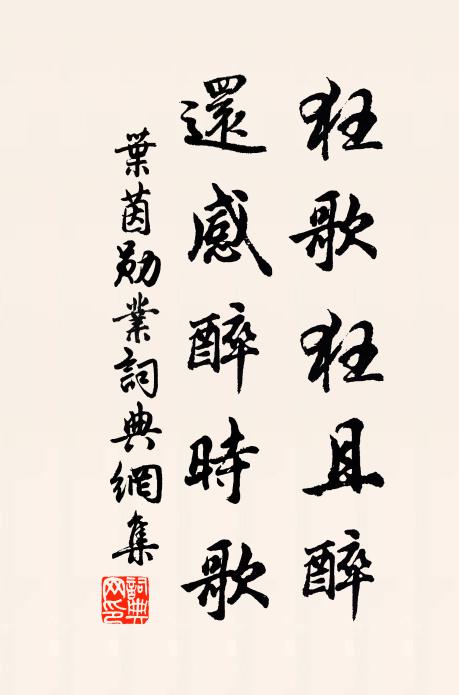 狂歌狂且醉
還感醉時歌
葉茵勛業詞典網集
詞典网印